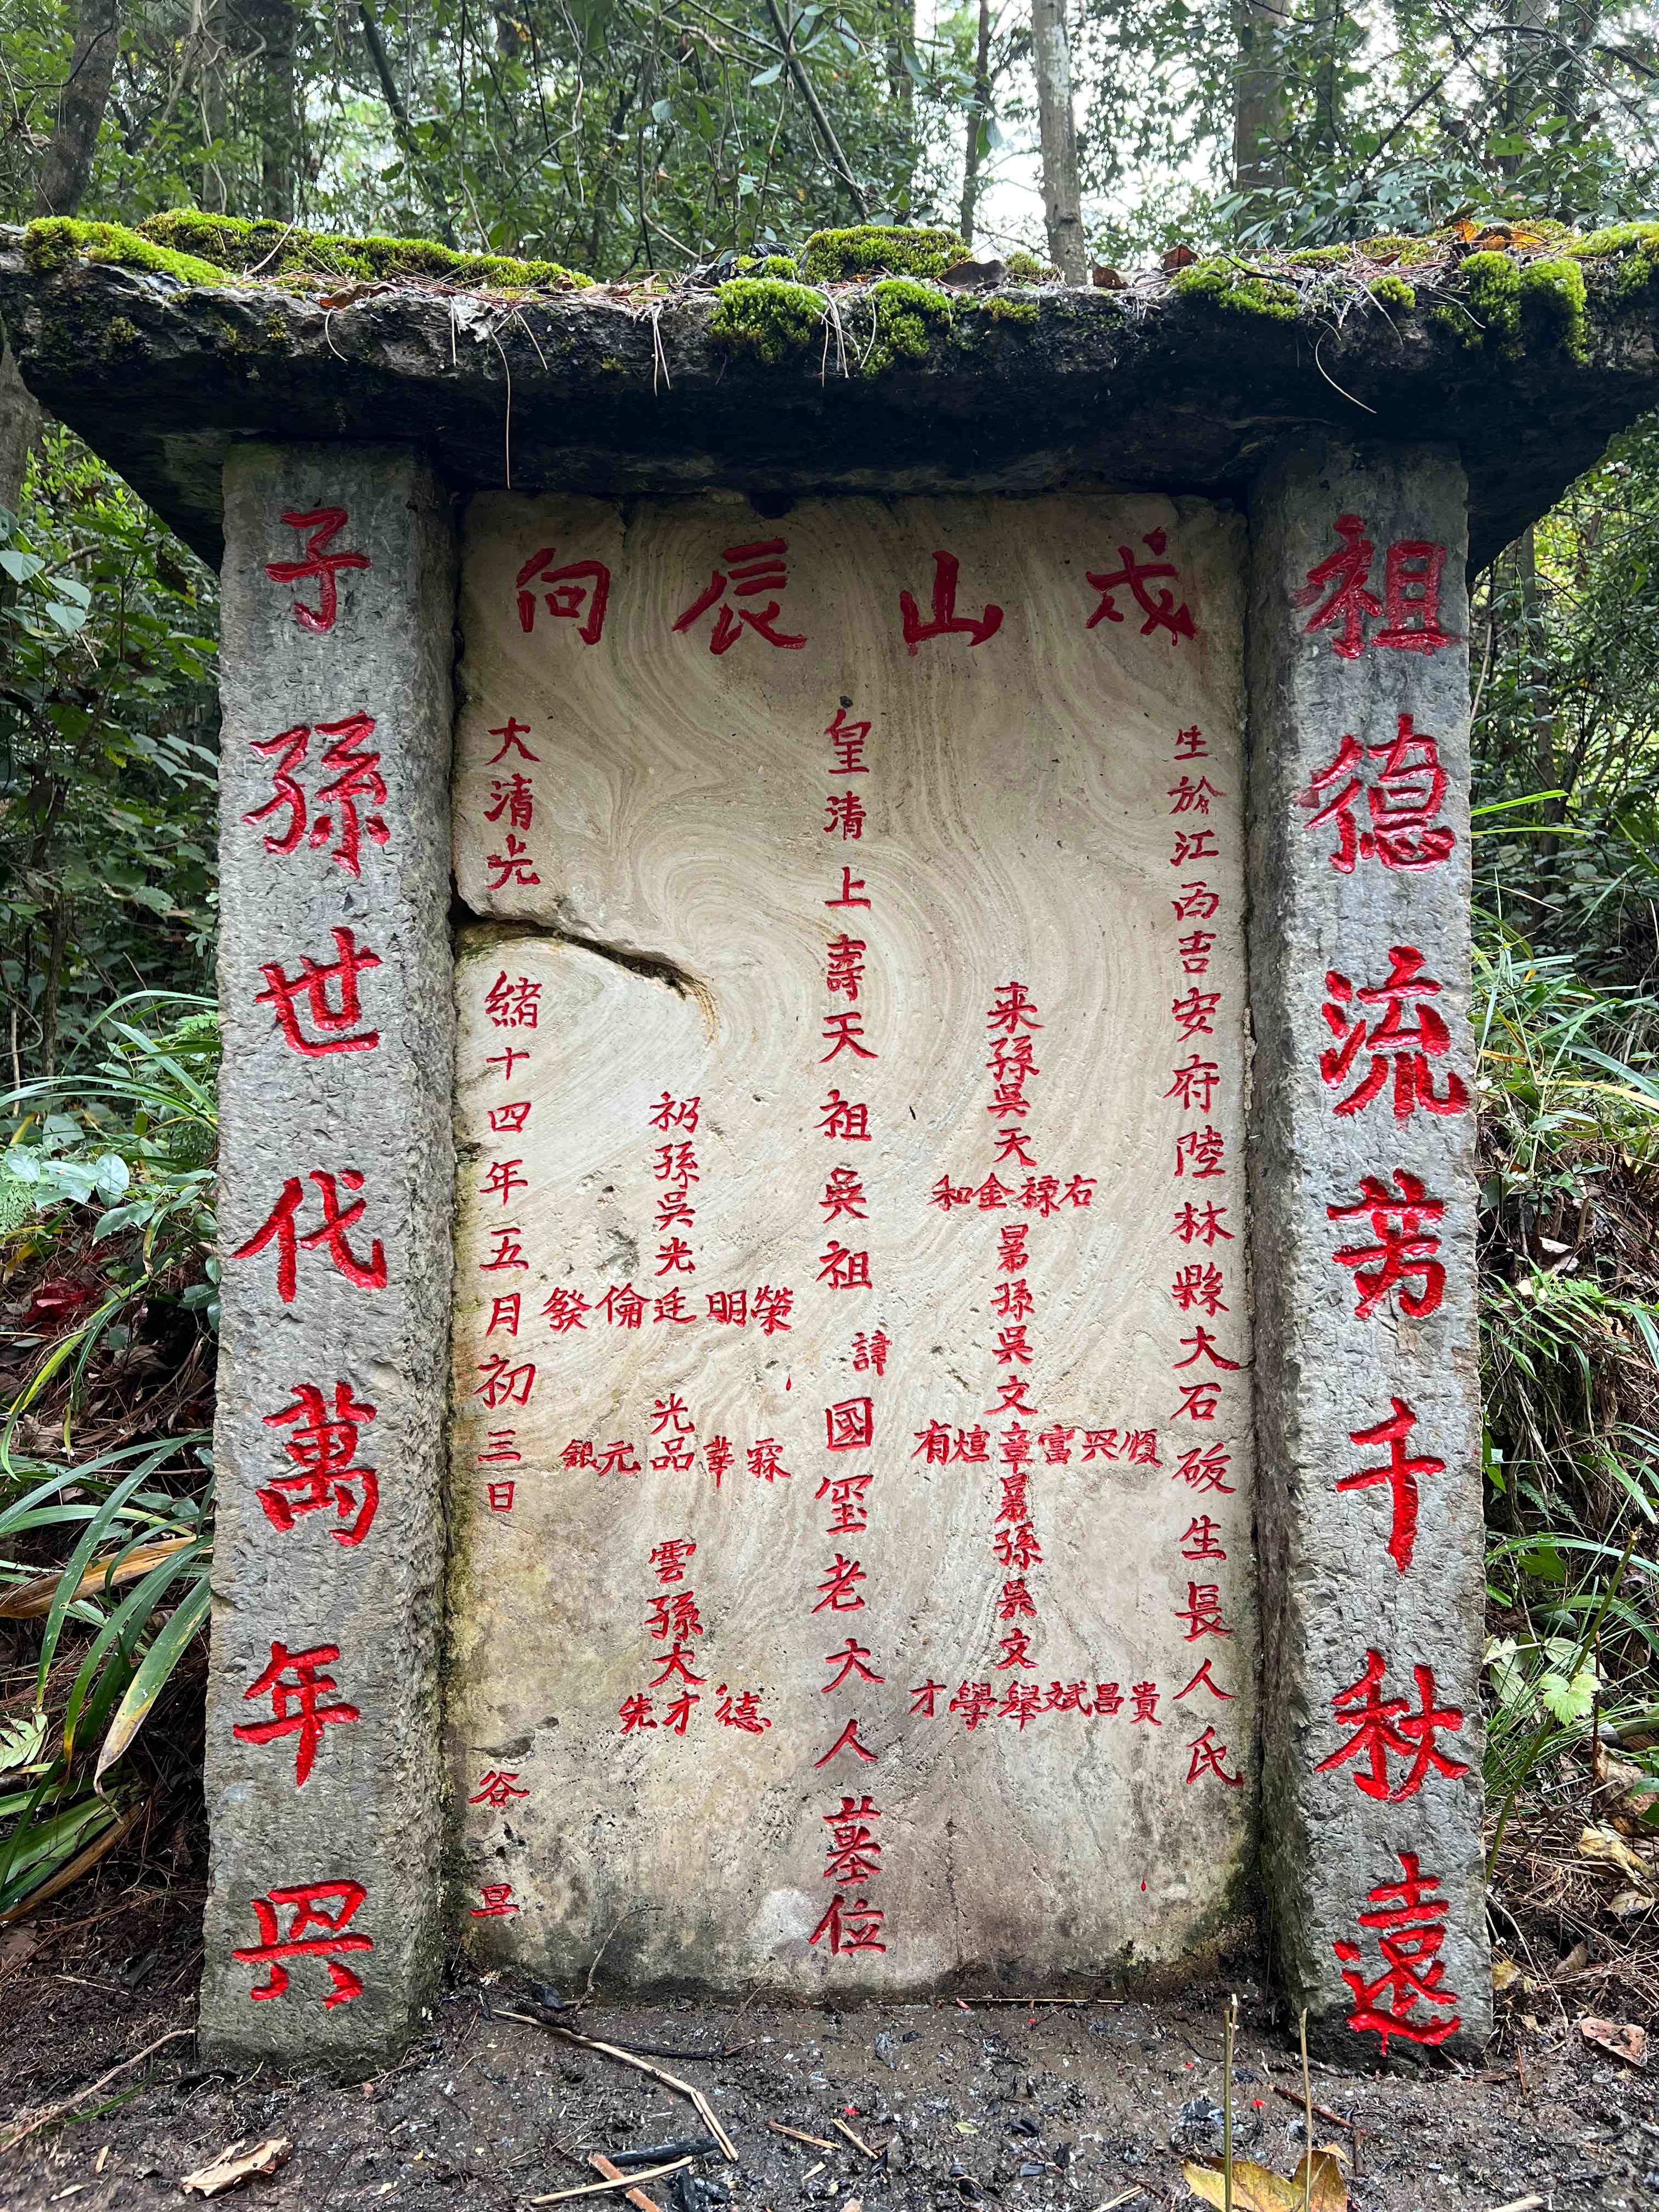 祖德流芳千秋遠
戌山辰向
生於江西吉安府陸林縣大石砍生長人氏
来孫吳天
右祿金和
晜孫吳文
順興富章煊有
晜孫吳文
貴昌斌舉學才
皇清上壽天祖吳祖諱國璽老大人墓位
礽孫吳光
榮明廷倫發
光
霖華品元銀
雲孫大
德才先
大清光緒十四年五月初三日谷旦
子孫世代萬年興